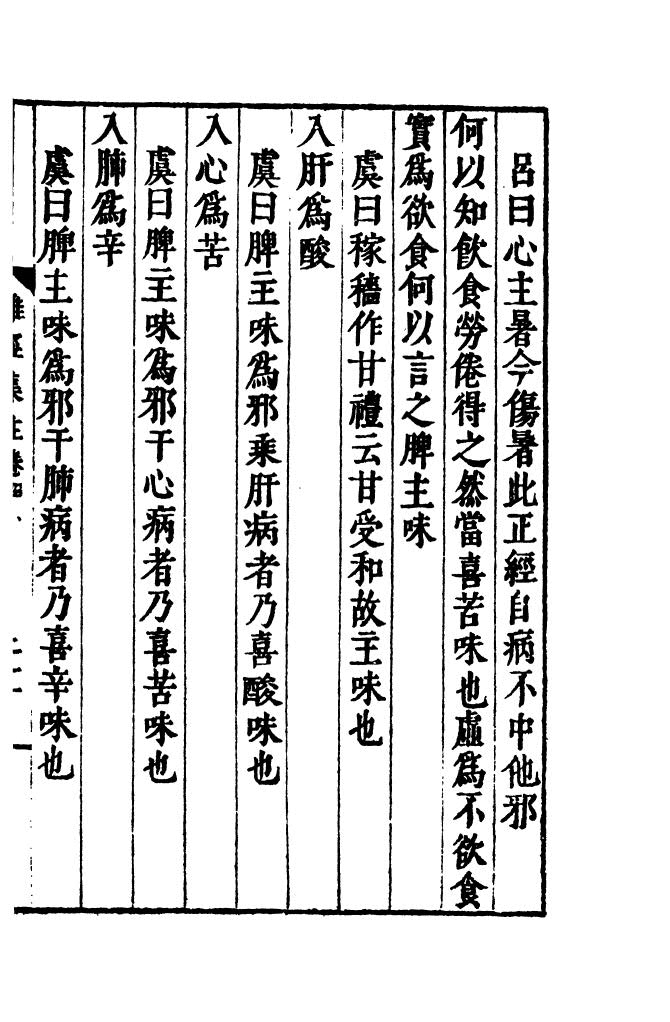 呂曰心主暑今傷暑此正經自病不中他邪
何以知飲食勞倦得之然當喜苦味也虛爲不欲食
實爲欲食何以言之脾主味
虞曰稼穡作甘禮云甘受和故主味也
入肝爲酸
虞曰脾主味爲邪乘肝病者乃喜酸味也
入心爲苦
虞曰脾主味爲邪干心病者乃喜苦味也
入肺爲辛
虞曰脾主味爲邪干肺病者乃喜辛味也